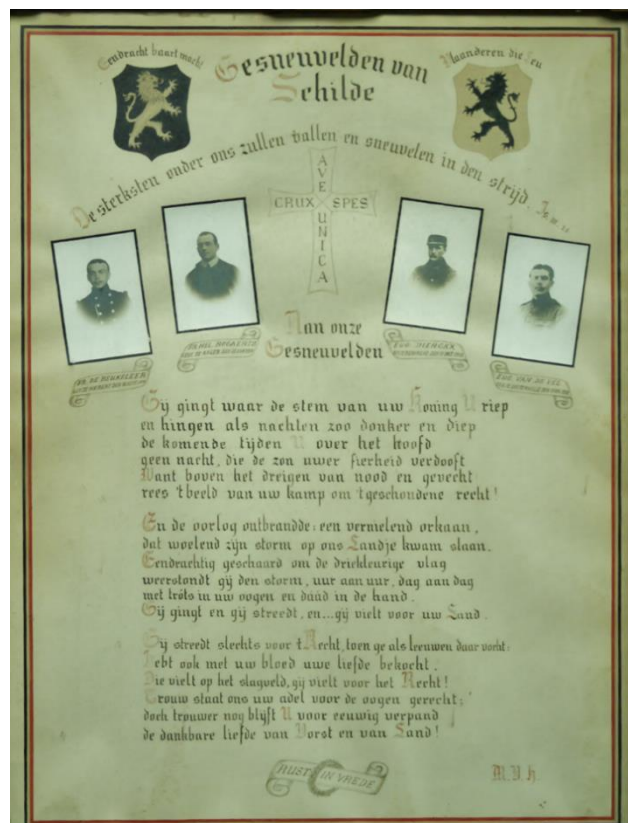 Eendracht baart macht
Vlaanderen die Leu
Gesneuvelden van
Schilde
De sterksten onder ons zullen vallen en sneuvelen in den strijd.
AVE
CRUX SPES
UNICA
Aan onze
Gesneuvelden
Gij gingt waar de stem van uw Koning U riep
en hingen als nachten zoo donker en diep
de komende tijden U over het hoofd
geen nacht, die de zon uwer fierheid verdooft
Want boven het dreigen van nood en gevecht
rees 't beeld van uw kamp om 't geschondene recht!
En de oorlog ontbrandde: een vernielend orkaan,
dat woelend zijn storm op ons Landje kwam slaan.
Eendrachtig geschaard om de driekleurige vlag
weerstondt gij den storm, uur aan uur, dag aan dag
met trots in uw oogen en daad in de hand.
Gij gingt en gij streedt, en...gij vielt voor uw Land.
Gij streedt slechts voor 't Recht, toen ge als leeuwen daar vocht:
Hebt ook met uw bloed uwe liefde bekocht.
Die vielt op het slagveld, gij vielt voor het Recht!
Trouw staat ons uw adel voor de oogen gerecht;
doch trouwer nog blijft U voor eeuwig verpand
de dankbare liefde van Vorst en van Land!
RUST IN VREDE
M.V.h.